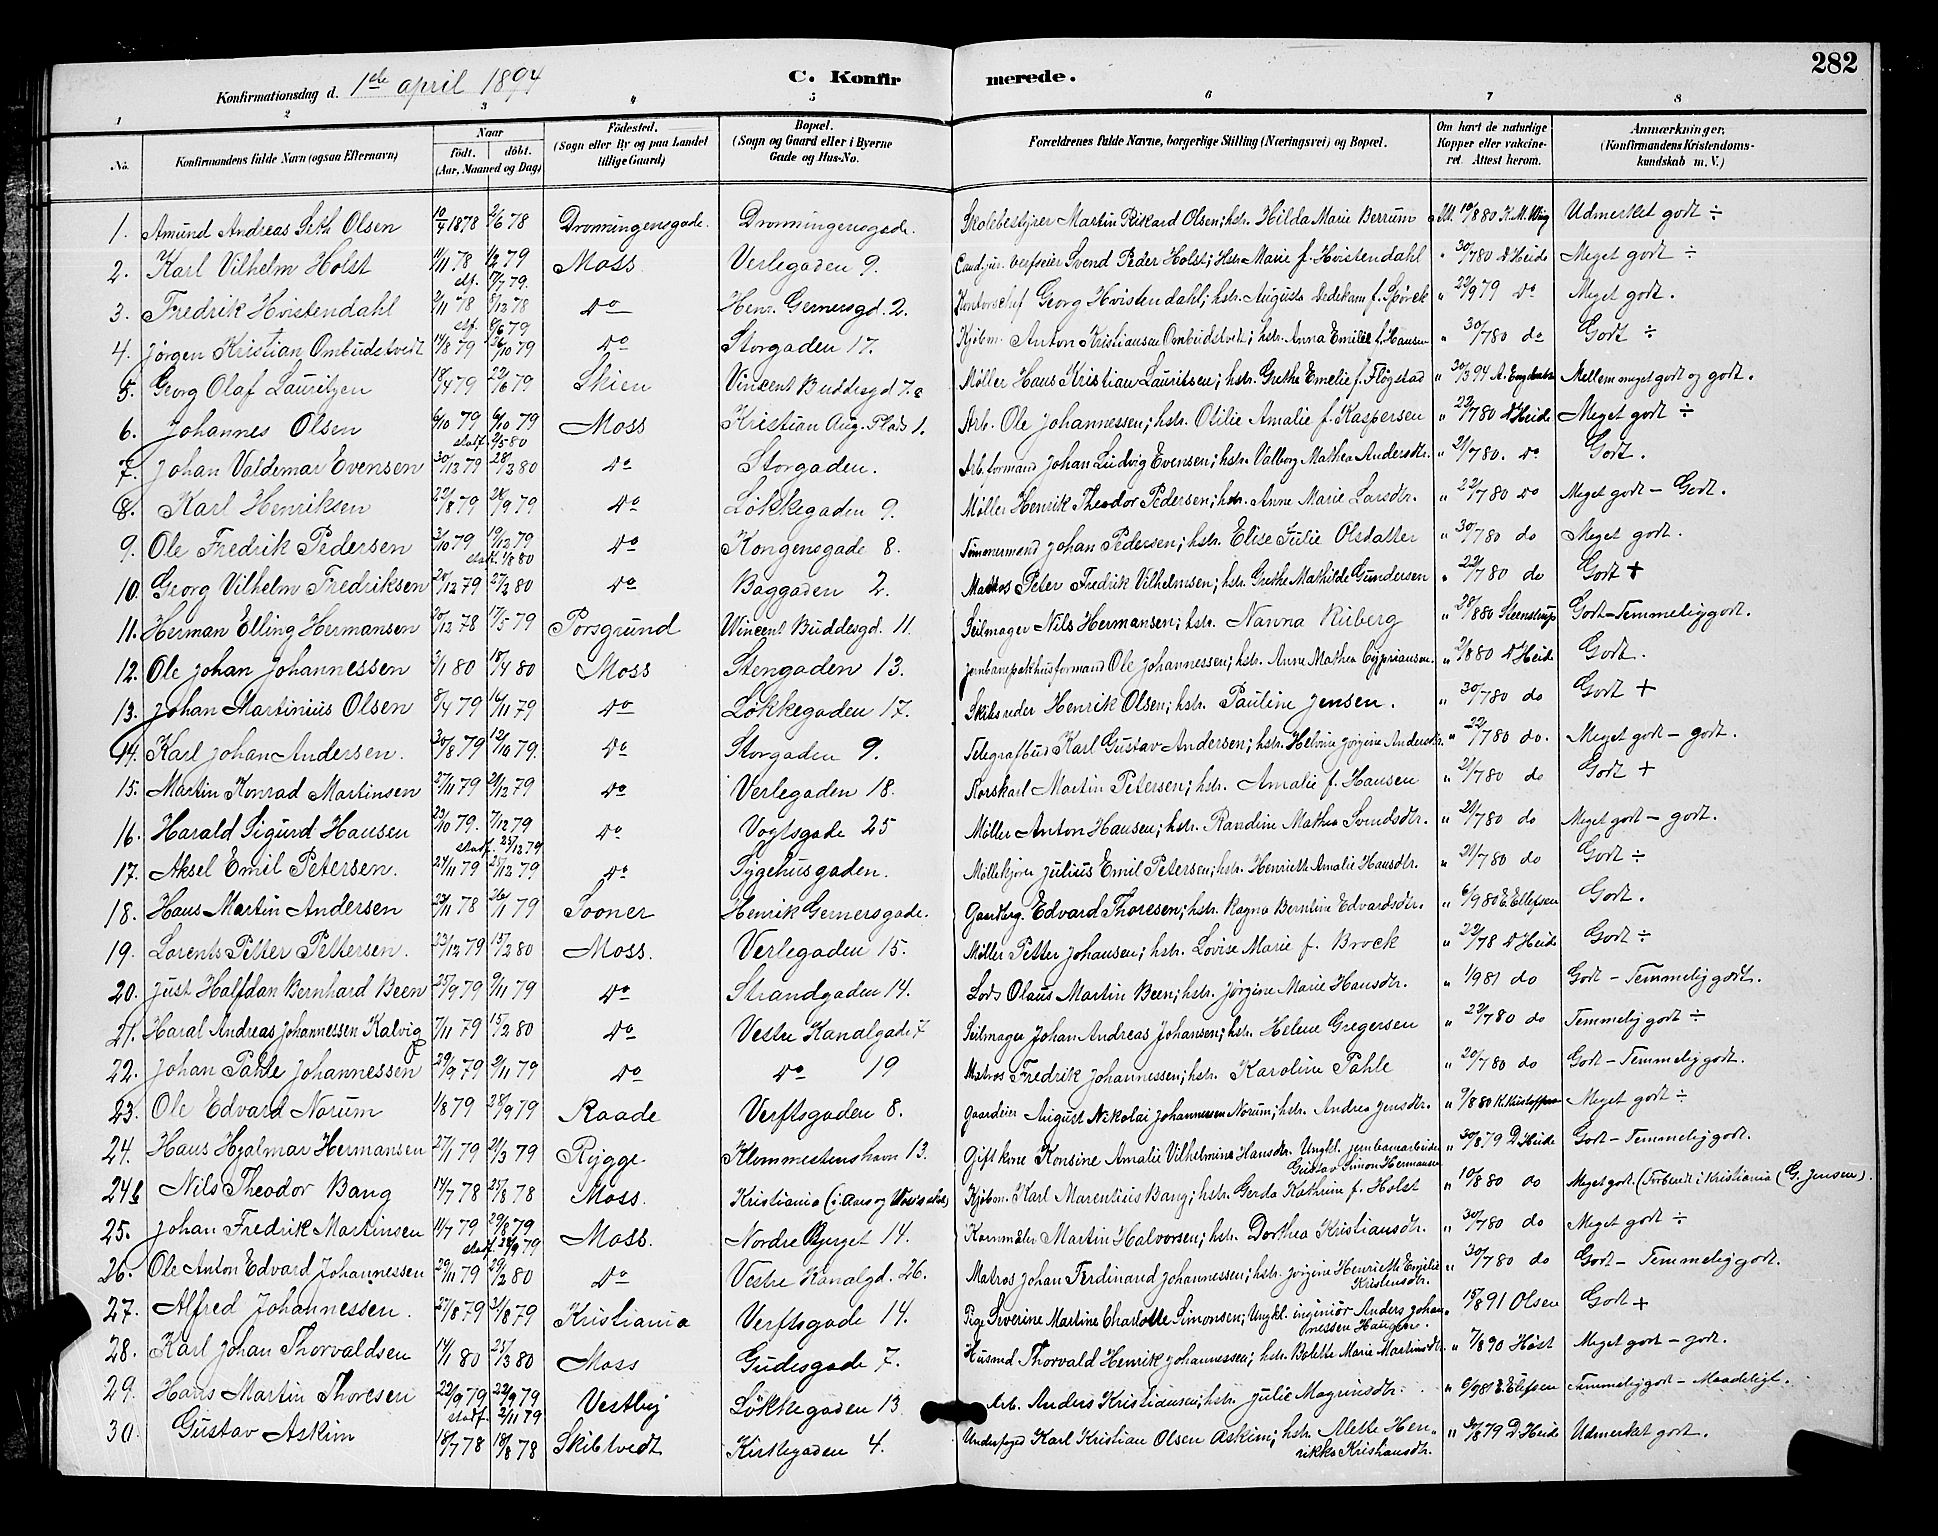 282
Konfirmationsdag d. 1ste april 1894 C. Konfirmerede.
1 2 3 4 5 6 7 8
No. Konfirmandens fulde Navn (ogsaa Efternavn) Naar födt. döbt. (Aar, Maaned og Dag) Födested. (Sogn eller By og paa Landet tillige Gaard) Bopæl. (Sogn og Gaard eller i Byerne Gade og Hus-No. Forældrenes fulde Navne, borgerlige Stilling (Næringsvei) og Bopæl. Om havt de naturlige Kopper eller vakcineret. Attest herom. Anmærkninger. (Konfirmandens Kristendomskundskab m. V.)
1. Amund Andreas Seth Olsen 10/4 1878 2/6 78 Dronningensgade. Dronningensgade. Skolebestyrer Martin Rikard Olsen; hstr. Hilda Marie Berrum 10/8 80 K. M. Wing Udmerket godt ÷
2. Karl Vilhelm Holst 4/11 78 1/2 79 Moss Verlegaden 9. Svend Peder Holst; Hstr. Marie f. Hvistendahl " 30/7 80 D Heide Meget godt ÷
3. Fredrik Hvistendahl 2/11 78 8/12 78 Do Henr. Gernersgd. 2. Kontorschef Georg Hvistendahl; hstr. Augusta Dedekam f. Spörck " 22/9 79 Do Meget godt.
4. Jörgen Kristian Ombudstvedt 14/8 79 26/10 79 Do Storgaden 17. Kjöbm. Anton Kristiansen Ombudstvedt; hstr. Anna Emilie f. Hansen " 30/7 80 do Godt ÷
5. Georg Olaf Lauritzen 18/4 79 22/6 79 Skien Vincent Buddesgd 7.a Möller Hans Kristian Lauritsen; hstr. Grethe Emelie f. Flögstad " 30/3 94 Mellem meget godt og godt.
6. Johannes Olsen 6/10 79 6/10 79 stadf. 2/5 80 Moss Kristian Aug. Plads 1. Arb. Ole Johannessen; hstr. Otilie Amalie f. Kaspersen " 22/7 80 D Heide Meget godt ÷
7. Johan Valdemar Evensen 30/12 79 28/3 80 Do Storgaden. Arb. formand Johan Ludvig Evensen; hstr. Valborg Mathea Andersdtr. " 21/7 80. Do Godt.
8. Karl Henriksen 22/8 79 28/9 79 Do Lökkegaden 9. Möller Henrik Theodor Pedersen; hstr. Anne Marie Larsdtr. " 22/7 80 Do Meget godt - Godt.
9. Ole Fredrik Pedersen 3/10 79 19/12 79 stadf. 1/8 80 Do Kongensgade 8. Tömmermand Johan Pedersen; hstr. Elise Julie Olsdatter " 30/7 80 do Meget godt.
10. Georg Vilhelm Fredriksen 28/12 79 27/3 80 Do Baggaden 2. Matros Peter Fredrik Vilhelmsen; hstr. Grethe Mathilde Gundersen " 22/7 80 do Godt +
11. Herman Elling Hermansen 20/12 78 17/5 79 Porsgrund Wincent Buddesgd. 11. Seilmager Nils Hermansen; hstr. Nanna Riiberg " 28/8 80 Steenstrup Godt - Temmelig godt.
12. Ole Johan Johannessen 3/1 80 18/4 80 Moss Stengaden 13. Jernbanepakhusformand Ole Johannessen; hstr. Anne Mathea Cypriansen. " 2/8 80 D Heide Godt.
13. Johan Martinius Olsen 8/4 79 16/11 79 Do Lökkegaden 17. Skibsreder Henrik Olsen; hstr. Pauline Jensen. " 30/7 80 do Godt +
14. Karl Johan Andersen. 30/8 79 12/10 79. Do Storgaden 9. Telegrafbud Karl Gustav Andersen; hstr. Helvine Jörgine Andersdtr. " 22/7 80 do. Meget godt - godt.
15. Martin Konrad Martinsen 27/11 79 21/12 79 Do Verlegaden 18. Martin Petersen; hstr. Amalie f. Hansen " 21/7 80 do Godt +
16. Harald Sigurd Hansen 23/10 79. 7/12 79 Do Vogtsgade 25 Möller Anton Hansen; hstr. Randine Mathea Svendsdtr. " 21/7 80 do Meget godt - godt.
17. Aksel Emil Petersen. 24/11 79 stadf. 25/12 79 Do Sygehusgaden. Möllekjörer Julius Emil Petersen; hstr. Henriette Amalie Hansdtr. " 21/7 80 do Godt ÷
18. Hans Martin Andersen 23/11 78 26/1 79 Sooner Henrik Gernersgade. Gaardbrg. Edvard Thoresen; hstr. Ragna Berntine Edvardsdtr. " 6/9 80 E. Ellefsen Godt.
19. Lorents Petter Pettersen. 23/12 79 15/2 80 Moss. Verlegaden 15. Möller Petter Johansen; hstr. Lovise Marie f. Brock " 22/7 8 D Heide Godt ÷
20. Just Halfdan Bernhard Been 25/9 79 9/11 79 Do Strandgaden 14. Lods Olaus Martin Been; hstr. Jörgine Marie Hansdtr. " 1/9 81 do Godt - Temmelig godt.
21. Haral Andreas Johannessen Kalvig 7/11 79 15/2 80 Do Vestre Kanalgade 7 Seilmager Johan Andreas Johansen; hstr. Helene Gregersen " 23/7 80 do Temmelig godt ÷
22. Johan Pahle Johannessen 29/9 79 9/11 79 Do Do 19 Matros Fredrik Johannessen; hstr. Karoline Pahle " 20/7 80 do Godt - Temmelig godt.
23. Ole Edvard Norum 1/8 79 28/9 79 Raade Verftsgaden 8. Gaardeier August Nikolai Johannessen Norum; hstr. Andrea Jensdtr. " 9/8 80 K. Kristoffersen Meget godt ÷
24. Hans Hjalmar Hermansen 27/1 79 2/3 79 Rygge Klommestenshavn 13. Gift kvne Konsine Amalie Vilhelmine Hansdtr. Ungkl. jernbanearbeider Gustav Simon Hermansen " 30/8 79 D. Heide Godt - Temmelig godt.
24b Nils Theodor Bang 14/7 78 25/8 78 Moss Kristiania Kjöbm. Karl Marentius Bang; hstr. Gerda Kathrine f. Holst " 10/8 80 do Meget godt. (Forberedt i Kristiania (G. Jensen).
25. Johan Fredrik Martinsen 11/7 79 29/8 79 stadf. 28/9 79 Moss. Nordre Bjerget 14. Kornmåler Martin Halvorsen; hstr. Dorthea Kristiansdtr. " 30/7 80 do Meget godt ÷
26. Ole Anton Edvard Johannessen 29/11 79 29/2 80 Do Vestre Kanalgd. 26. Matros Johan Ferdinand Johannessen; hstr. Jörgine Henriette Emilie Kristensdtr. " 30/7 80 do Godt - Temmelig godt.
27. Alfred Johannessen. 27/8 79 31/8 79 Kristiania Verftsgade 14. Pige Severine Martine Charlotte Simonsen; Ungkl. ingeniör Anders Johannessen Haugen. " 15/8 91 Olsen Godt +
28. Karl Johan Thorvaldsen 14/1 80 25/3 80 Moss Gudesgade 7. Husmd Thorvald Henrik Johannessen; hstr. Bolette Marie Martinsdtr. " 7/8 90 Höst Meget godt - godt.
29. Hans Martin Thoresen 22/9 79 22/9 79 stadf. 2/11 79 Vestby Lökkegaden 13 Arb. Anders Kristiansen; hstr. Julie Magnusdtr. " 6/9 81 E. Elefsen Temmelig godt - Maadeligt.
30. Gustav Askim 18/7 78 18/8 78 Skibtvedt Kirkegaden 4. Underfoged Karl Kristian Olsen Askim; hstr. Alette Henrikka Kristiansdtr. " 30/8 79 D. Heide Udmerket godt.